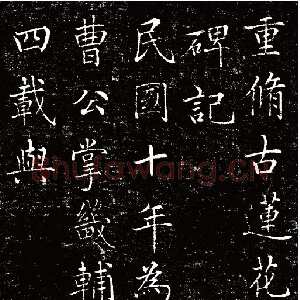 重脩古蓮花
碑記
民國十年為
曹公掌幾輔
四載與
shufawang.cn